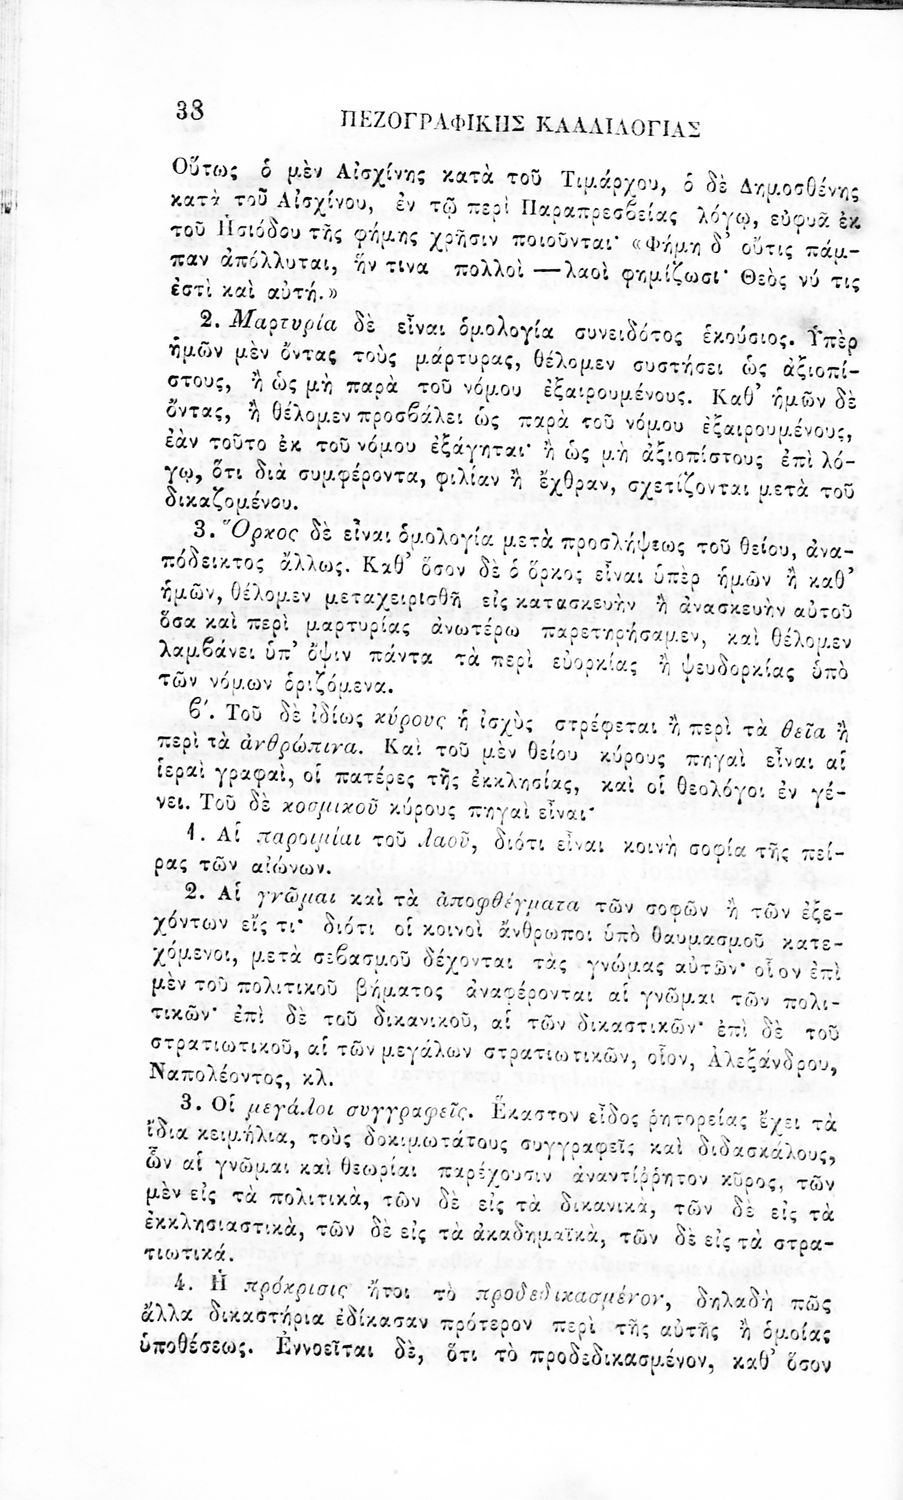 38
ΠΕΖΟΓΡΑΦΙΚΗΣ ΚΑΛΛΙΛΟΓΙΑΣ
Οὕτως ὁ μὲν Αἰσχίνης κατὰ τοῦ Τιμάρχου, ὁ δὲ Δημοσθένης
κατὰ τοῦ Αἰσχίνου, ἐν τῷ περὶ Παραπρεσϐείας λόγῳ, εὐφυᾶ ἐκ
τοῦ Ἡσιόδου τῆς φήμης χρῆσιν ποιοῦνται· «Φήμη δ’ οὔτις πάμ-
παν ἀπόλλυται, ἥν τινα πολλοὶ — λαοὶ φημίζωσι· Θεὸς νύ τις
ἐστὶ καὶ αὐτή.»
2. Μαρτυρία δὲ εἶναι ὁμολογία συνειδότος ἑκούσιος. Ὑπὲρ
ἡμῶν μὲν ὄντας τοὺς μάρτυρας, θέλομεν συστήσει ὡς ἀξιοπί-
στους, ἢ ὡς μὴ παρὰ τοῦ νόμου ἐξαιρουμένους. Καθ’ ἡμῶν δὲ
ὄντας, ἢ θέλομεν προσϐάλει ὡς παρὰ τοῦ νόμου ἐξαιρουμένους,
ἐὰν τοῦτο ἐκ τοῦ νόμου ἐξάγηται· ἢ ὡς μὴ ἀξιοπίστους ἐπὶ λό-
γῳ, ὅτι διὰ συμφέροντα, φιλίαν ἢ ἔχθραν, σχετίζονται μετὰ τοῦ
δικαζομένου.
3. Ὅρκος δὲ εἶναι ὁμολογία μετὰ προσλήψεως τοῦ θείου, ἀνα-
πόδεικτος ἄλλως. Καθ’ ὅσον δὲ ὁ ὅρκος εἶναι ὑπὲρ ἡμῶν ἢ καθ’
ἡμῶν, θέλομεν μεταχειρισθῆ εἰς κατασκευὴν ἢ ἀνασκευὴν αὐτοῦ
ὅσα καὶ περὶ μαρτυρίας ἀνωτέρω παρετηρήσαμεν, καὶ θέλομεν
λαμϐάνει ὑπ’ ὄψιν πάντα τὰ περὶ εὐορκίας ἢ ψευδορκίας ὑπὸ
τῶν νόμων ὁριζόμενα.
ϐ′. Τοῦ δὲ ἰδίως κύρους ἡ ἰσχὺς στρέφεται ἢ περὶ τὰ θεῖα ἢ
περὶ τὰ ἀνθρώπινα. Καὶ τοῦ μὲν θείου κύρους πηγαὶ εἶναι αἱ
ἱεραὶ γραφαὶ, οἱ πατέρες τῆς ἐκκλησίας, καὶ οἱ θεολόγοι ἐν γέ-
νει. Τοῦ δὲ κοσμικοῦ κύρους πηγαὶ εἶναι·
1. Αἱ παροιμίαι τοῦ λαοῦ, διότι εἶναι κοινὴ σοφία τῆς πεί-
ρας τῶν αἰώνων.
2. Αἱ γνῶμαι καὶ τὰ ἀποφθέγματα τῶν σοφῶν ἢ τῶν ἐξε-
χόντων εἴς τι· διότι οἱ κοινοὶ ἄνθρωποι ὑπὸ θαυμασμοῦ κατε-
χόμενοι, μετὰ σεϐασμοῦ δέχονται τὰς γνώμας αὐτῶν· οἷον ἐπὶ
μὲν τοῦ πολιτικοῦ βήματος ἀναφέρονται αἱ γνῶμαι τῶν πολι-
τικῶν· ἐπὶ δὲ τοῦ δικανικοῦ, αἱ τῶν δικαστικῶν· ἐπὶ δὲ τοῦ
στρατιωτικοῦ, αἱ τῶν μεγάλων στρατιωτικῶν, οἷον, Ἀλεξάνδρου,
Ναπολέοντος, κλ.
3. Οἱ μεγάλοι συγγραφεῖς. Ἕκαστον εἶδος ῥητορείας ἔχει τὰ
ἴδια κειμήλια, τοὺς δοκιμωτάτους συγγραφεῖς καὶ διδασκάλους,
ὧν αἱ γνῶμαι καὶ θεωρίαι παρέχουσιν ἀναντίῤῥητον κῦρος, τῶν
μὲν εἰς τὰ πολιτικὰ, τῶν δὲ εἰς τὰ δικανικὰ, τῶν δὲ εἰς τὰ
ἐκκλησιαστικὰ, τῶν δὲ εἰς τὰ ἀκαδημαϊκὰ, τῶν δὲ εἰς τὰ στρα-
τιωτικά.
4. Ἡ πρόκρισις ἤτοι τὸ προδεδικασμένον, δηλαδὴ πῶς
ἄλλα δικαστήρια ἐδίκασαν πρότερον περὶ τῆς αὐτῆς ἢ ὁμοίας
ὑποθέσεως. Ἐννοεῖται δὲ, ὅτι τὸ προδεδικασμένον, καθ’ ὅσον